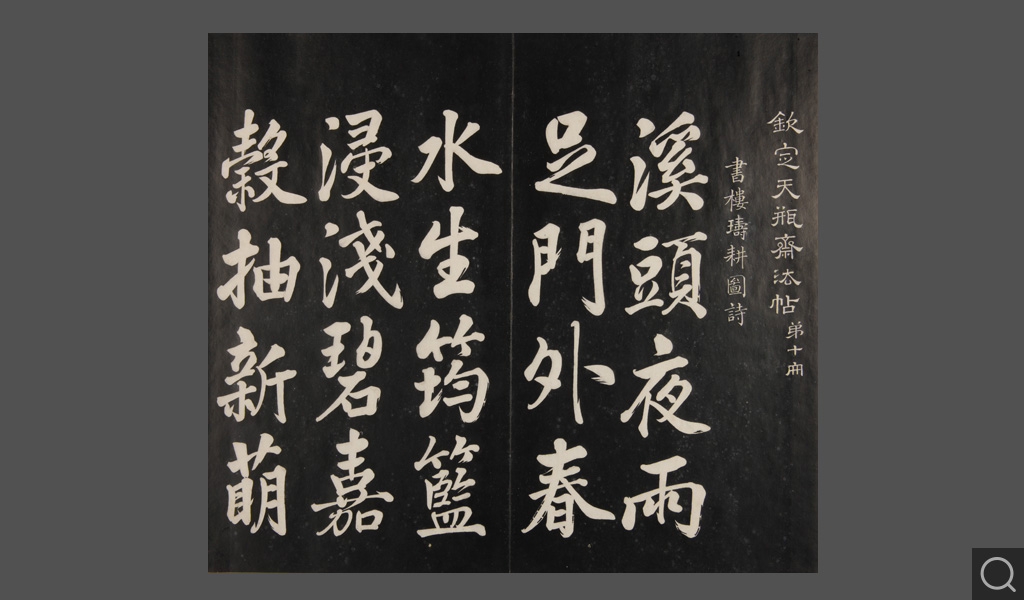 欽定天瓶齋法帖 弟十冊
書樓璹耕圖詩
溪頭夜雨
足門外春
水生筠籃
浸淺碧嘉
穀抽新萌